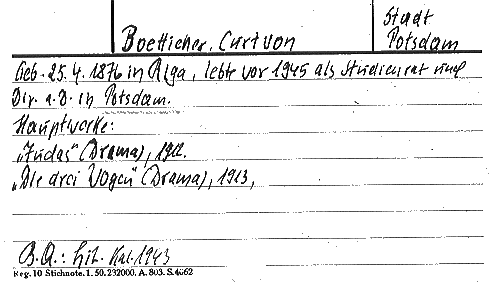 Boetticher, Curt von
Stadt
Potsdam
Geb. 25.4.1876 in Riga, lebte vor 1945 als Studienrat und
Dir. a.D. in Potsdam.
Hauptwerke:
„Judas“ (Drama), 1912.
„Die drei Wogen“ (Drama), 1913,
B.Q.: Lit. Kal. 1943
Reg. 10 Stichnote. 1. 50. 232000. A. 803. S. 4662